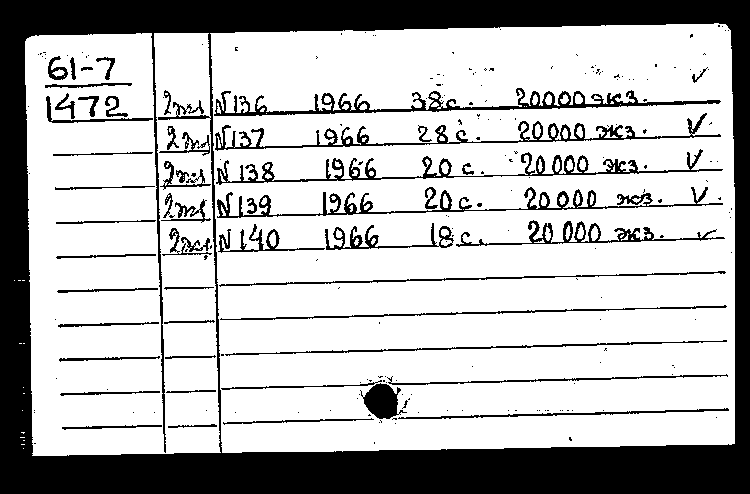 61-7
1472 2экз N136 1966 38 с. 20000 экз. ✓
2экз N137 1966 28 с. 20000 экз. ✓
2экз N138 1966 20 с. 20 000 экз. ✓
2экз N139 1966 20 с. 20 000 экз. ✓
2экз N140 1966 18 с. 20 000 экз. ✓